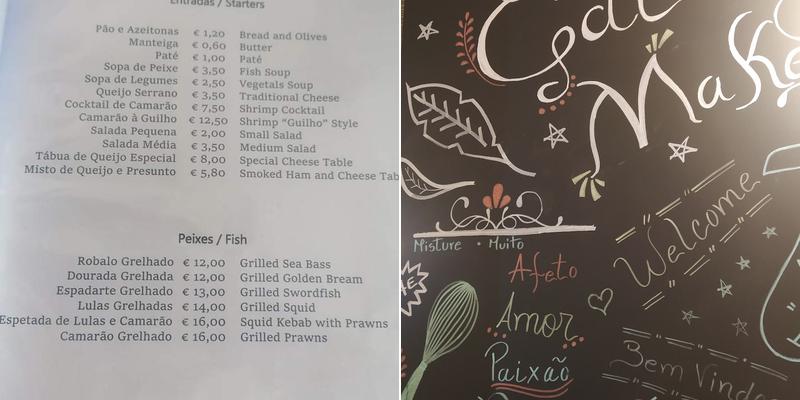 Entradas / Starters
Pão e Azeitonas € 1,20 Bread and Olives
Manteiga € 0,60 Butter
Paté € 1,00 Paté
Sopa de Peixe € 3,50 Fish Soup
Sopa de Legumes € 2,50 Vegetals Soup
Queijo Serrano € 3,50 Traditional Cheese
Cocktail de Camarão € 7,50 Shrimp Cocktail
Camarão à Guilho € 12,50 Shrimp “Guilho” Style
Salada Pequena € 2,00 Small Salad
Salada Média € 3,50 Medium Salad
Tábua de Queijo Especial € 8,00 Special Cheese Table
Misto de Queijo e Presunto € 5,80 Smoked Ham and Cheese Tab
Peixes / Fish
Robalo Grelhado € 12,00 Grilled Sea Bass
Dourada Grelhada € 12,00 Grilled Golden Bream
Espadarte Grelhado € 13,00 Grilled Swordfish
Lulas Grelhadas € 14,00 Grilled Squid
Espetada de Lulas e Camarão € 16,00 Squid Kebab with Prawns
Camarão Grelhado € 16,00 Grilled Prawns
Welcome
Misture • Muito
Afeto
Amor
Paixão
Bem Vindo